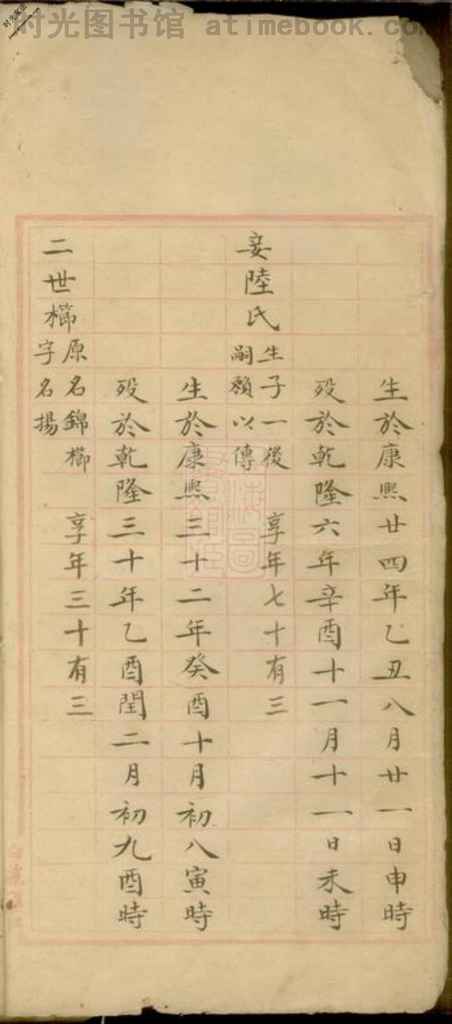 时光图书馆 atimebook.com
生於康熙廿四年乙丑八月廿一日申時
歿於乾隆六年辛酉十一月十一日未時
妾陸氏 生子一後
嗣顏以傳
享年七十有三
生於康熙三十二年癸酉十月初八寅時
歿於乾隆三十年乙酉閏二月初九酉時
二世櫛 原名錦櫛
字名揚
享年三十有三